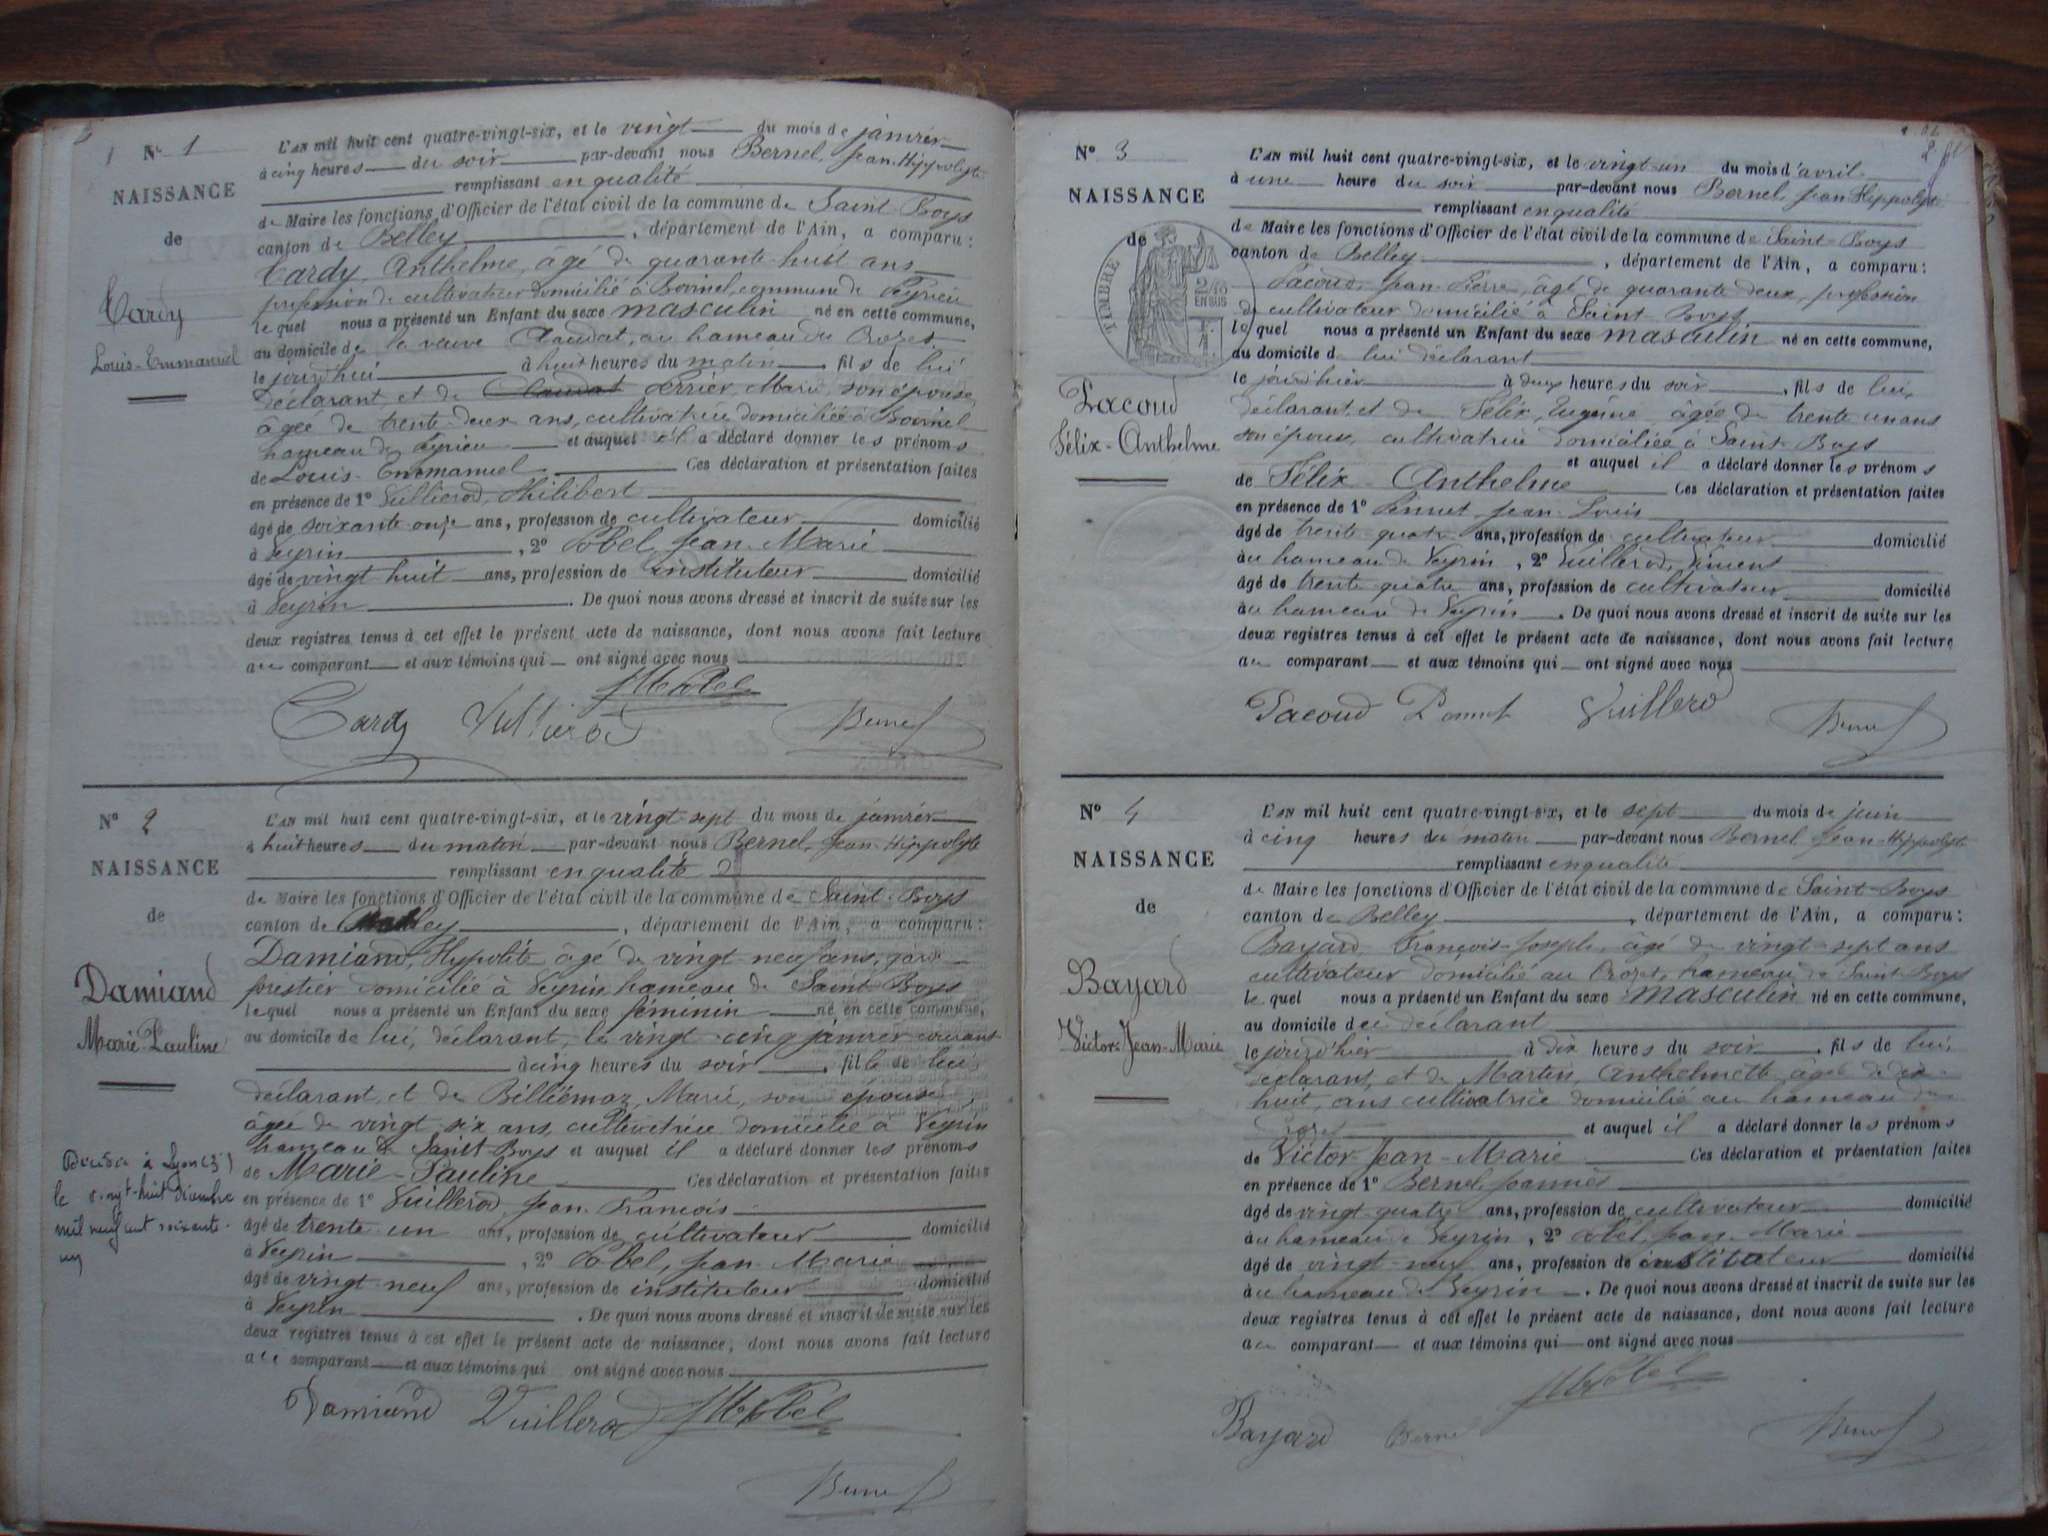 N° 1
NAISSANCE
de
Tardy
Louis-Emmanuel
L'AN mil huit cent quatre-vingt-six, et le vingt du mois de janvier
à cinq heures du soir par-devant nous Bernel, Jean-Hippolyte
remplissant en qualité
de Maire les fonctions d'Officier de l'état civil de la commune de Saint-Boys
canton de Belley, département de l'Ain, a comparu :
Tardy, Anthelme, âgé de quarante-huit ans
profession de cultivateur domicilié à commune de Peyrieu
le quel nous a présenté un Enfant du sexe masculin né en cette commune,
au domicile de la veuve Claudat, au hameau du Crozet
le jourd'hui à huit heures du matin, fils de lui
déclarant et de Claudat Marie, son épouse
âgée de trente-deux ans, cultivatrice domiciliée à
hameau de Peyrieu et auquel il a déclaré donner les prénoms
de Louis-Emmanuel Ces déclaration et présentation faites
en présence de 1° Vullierod, Philibert
âgé de soixante-onze ans, profession de cultivateur domicilié
à Veyrin, 2° Pobel, Jean-Marie
âgé de vingt-huit ans, profession de instituteur domicilié
à Veyrin. De quoi nous avons dressé et inscrit de suite sur les
deux registres tenus à cet effet le présent acte de naissance, dont nous avons fait lecture
au comparant et aux témoins qui ont signé avec nous
JM Pobel
Tardy Vullierod Bernel
N° 2
NAISSANCE
de
Damiand
Marie-Pauline
Décédée à Lyon (3)
le vingt-huit Décembre
mil neuf cent soixante-
un
L'AN mil huit cent quatre-vingt-six, et le vingt-sept du mois de janvier
à huit heures du matin par-devant nous Bernel, Jean-Hippolyte
remplissant en qualité
de Maire les fonctions d'Officier de l'état civil de la commune de Saint-Boys
canton de Belley, département de l'Ain, a comparu :
Damiand, Hypolite âgé de vingt-neuf ans, garde
forestier domicilié à Veyrin hameau de Saint-Boys
lequel nous a présenté un Enfant du sexe féminin né en cette commune,
au domicile de lui, déclarant, le vingt-cinq janvier courant
à cinq heures du soir, fille de lui
déclarant, et de Billiémaz, Marie, son épouse
âgée de vingt-six ans, cultivatrice domiciliée à Veyrin
hameau de Saint Boys et auquel il a déclaré donner les prénoms
de Marie-Pauline Ces déclaration et présentation faites
en présence de 1° Vuillerod, Jean-François
âgé de trente-un ans, profession de cultivateur domicilié
à Veyrin, 2° Pobel, Jean-Marie
âgé de vingt-neuf ans, profession de instituteur domicilié
à Veyrin. De quoi nous avons dressé et inscrit de suite sur les
deux registres tenus à cet effet le présent acte de naissance, dont nous avons fait lecture
au comparant et aux témoins qui ont signé avec nous
Damiand Vuillerod JM Pobel
Bernel
N° 3
NAISSANCE
de
TIMBRE
2/10
EN SUS
Pacoud
Félix-Anthelme
L'AN mil huit cent quatre-vingt-six, et le vingt-un du mois d'avril
à une heure du soir par-devant nous Bernel, Jean Hippolyte
remplissant en qualité
de Maire les fonctions d'Officier de l'état civil de la commune de Saint-Boys
canton de Belley, département de l'Ain, a comparu :
Pacoud, Jean-Pierre, âgé de quarante-deux, profession
de cultivateur domicilié à Saint Boys
le quel nous a présenté un Enfant du sexe masculin né en cette commune,
au domicile de lui déclarant
le jourd'hier à deux heures du soir, fils de lui,
déclarant, et de Félix, Eugénie âgée de trente-un ans
son épouse, cultivatrice domiciliée à Saint-Boys
et auquel il a déclaré donner les prénoms
de Félix-Anthelme Ces déclaration et présentation faites
en présence de 1° Jean-Louis
âgé de trente-quatre ans, profession de cultivateur domicilié
au hameau de Veyrin, 2° Vuillerod
âgé de trente-quatre ans, profession de cultivateur domicilié
au hameau de Veyrin. De quoi nous avons dressé et inscrit de suite sur les
deux registres tenus à cet effet le présent acte de naissance, dont nous avons fait lecture
au comparant et aux témoins qui ont signé avec nous
Pacoud Vuillerod Bernel
N° 4
NAISSANCE
de
Bayard
Victor-Jean-Marie
L'AN mil huit cent quatre-vingt-six, et le sept du mois de juin
à cinq heures du matin par-devant nous Bernel Jean-Hippolyte
remplissant en qualité
de Maire les fonctions d'Officier de l'état civil de la commune de Saint-Boys
canton de Belley, département de l'Ain, a comparu :
Bayard, François-Joseph, âgé de vingt-sept ans
cultivateur domicilié au Crozet, hameau de Saint Boys
le quel nous a présenté un Enfant du sexe masculin né en cette commune,
au domicile de déclarant
le jourd'hier à dix heures du soir, fils de lui,
déclarant, et de Martin, Anthelmette âgée de dix-
huit, ans cultivatrice domicilié au hameau du
Crozet et auquel il a déclaré donner les prénoms
de Victor-Jean-Marie Ces déclaration et présentation faites
en présence de 1° Bernel, Joanniès
âgé de vingt-quatre ans, profession de cultivateur domicilié
au hameau de Veyrin, 2° Pobel, Jean-Marie
âgé de vingt-neuf ans, profession de instituteur domicilié
au hameau de Veyrin. De quoi nous avons dressé et inscrit de suite sur les
deux registres tenus à cet effet le présent acte de naissance, dont nous avons fait lecture
au comparant et aux témoins qui ont signé avec nous
JM Pobel
Bayard Bernel Bernel